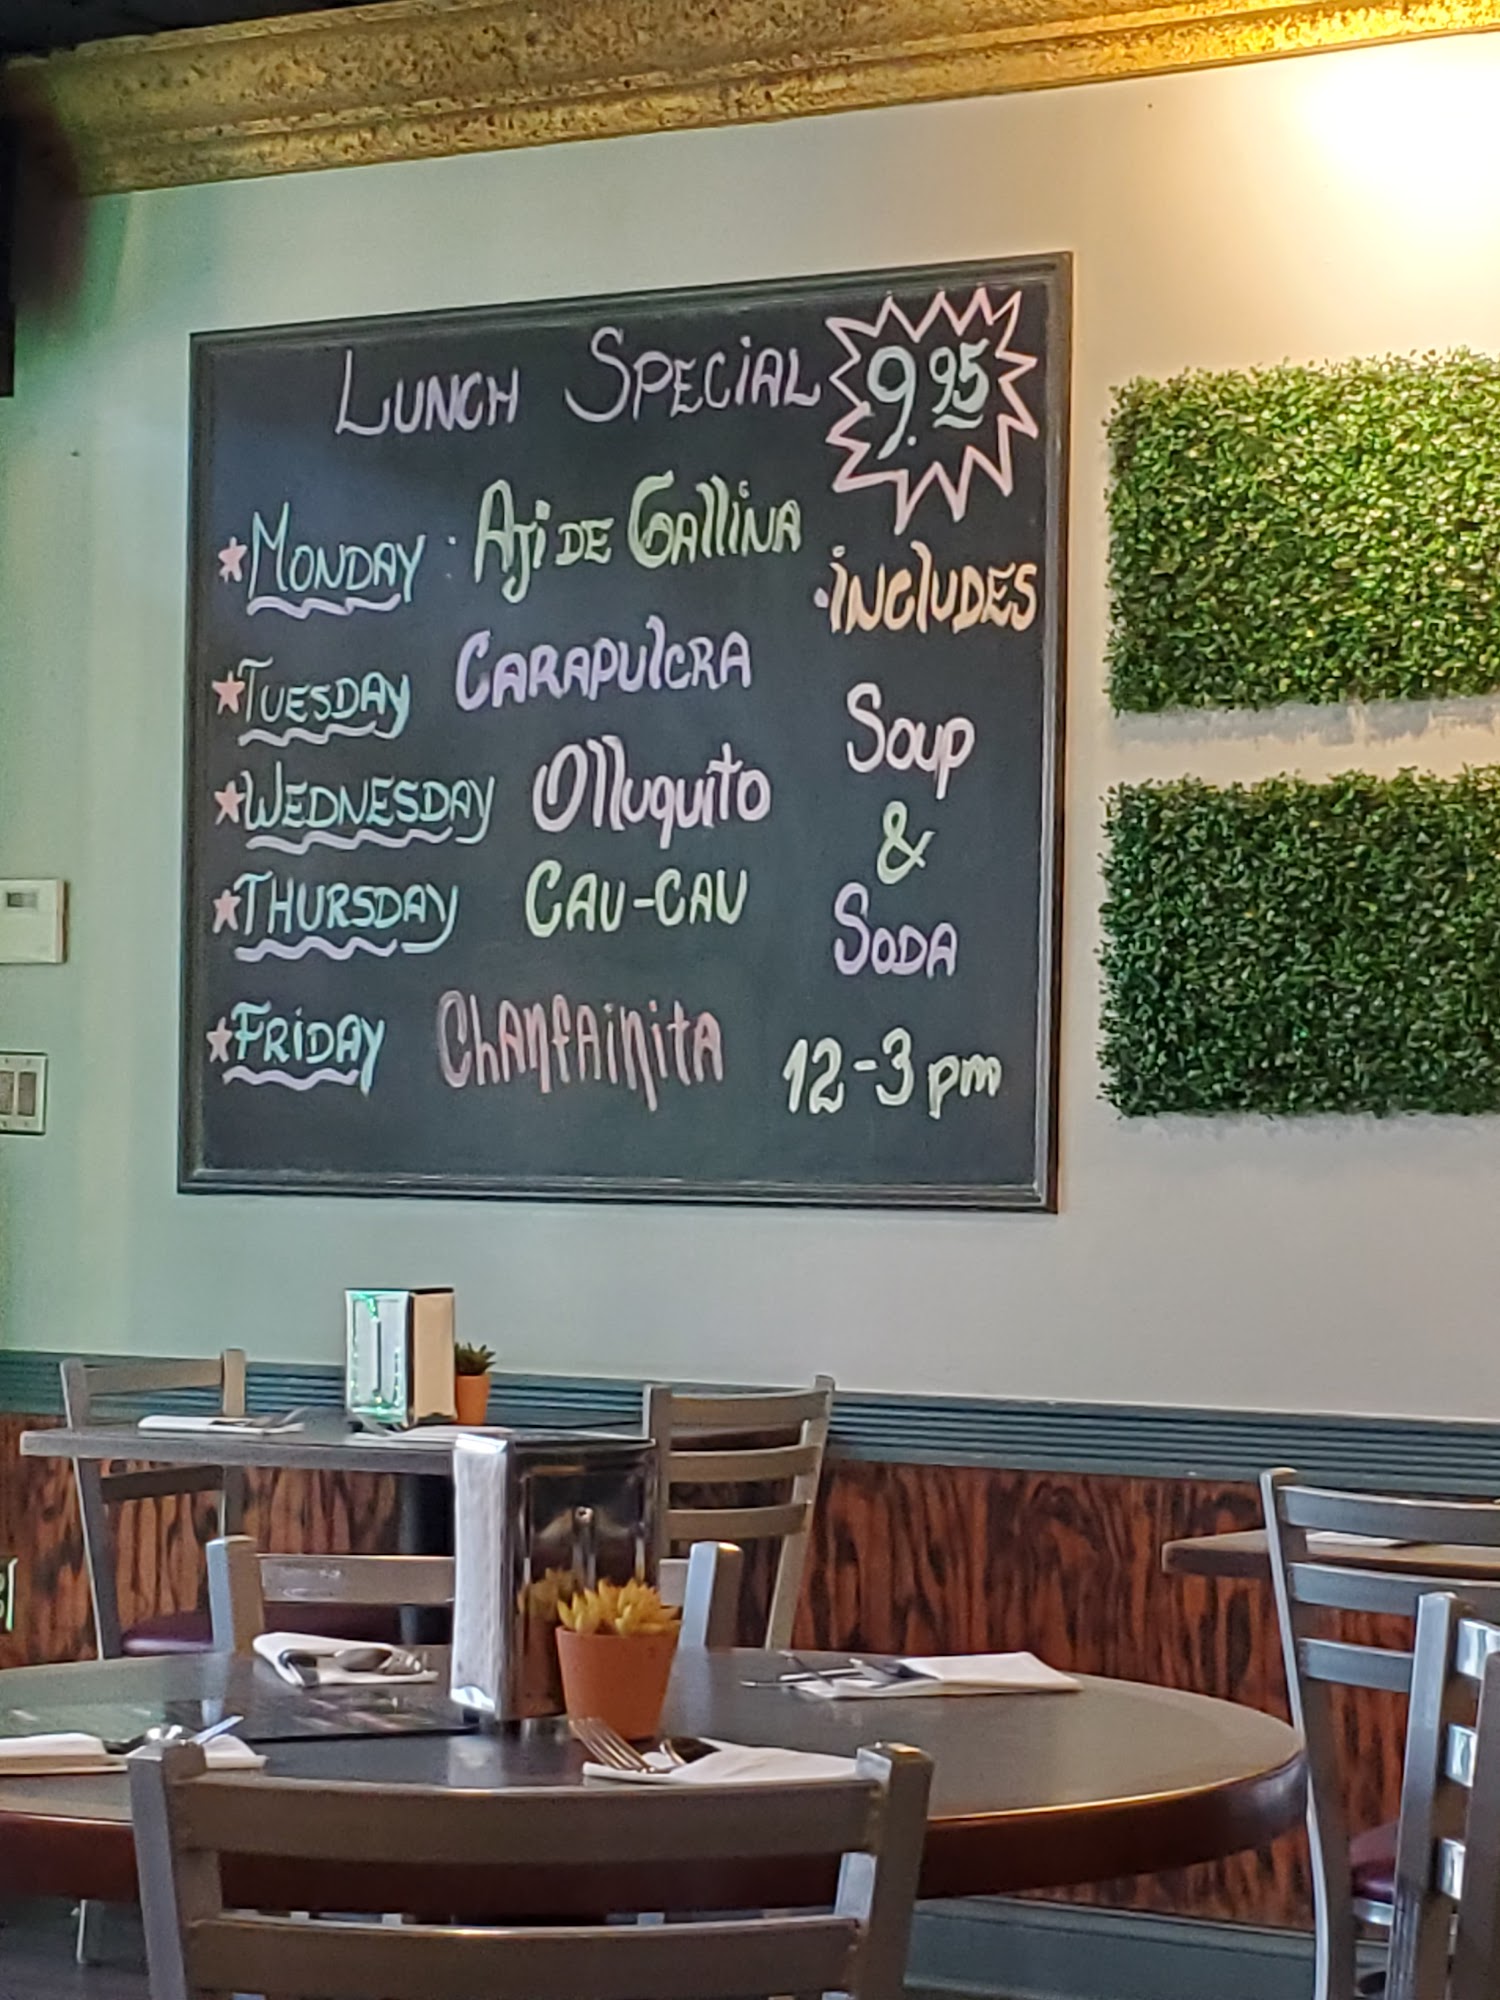 LUNCH SPECIAL 9.95
MONDAY · AJI DE GALLINA
· INCLUDES
TUESDAY CARAPULCRA
SOUP
WEDNESDAY OLLUQUITO
&
THURSDAY CAU-CAU
SODA
FRIDAY CHANFAINITA
12-3 pm